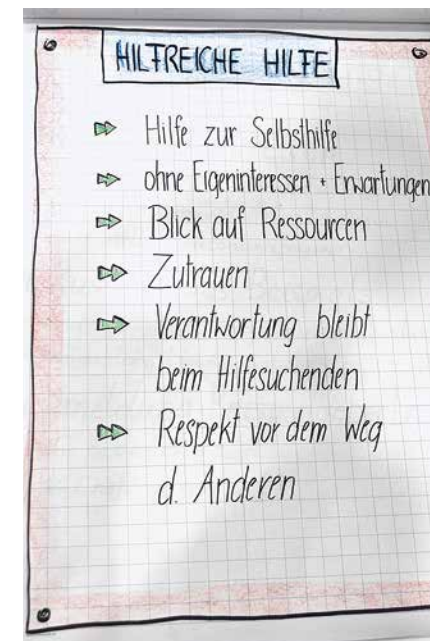 HILFREICHE HILFE
Hilfe zur Selbsthilfe
ohne Eigeninteressen + Erwartungen
Blick auf Ressourcen
Zutrauen
Verantwortung bleibt
beim Hilfesuchenden
Respekt vor dem Weg
d. Anderen